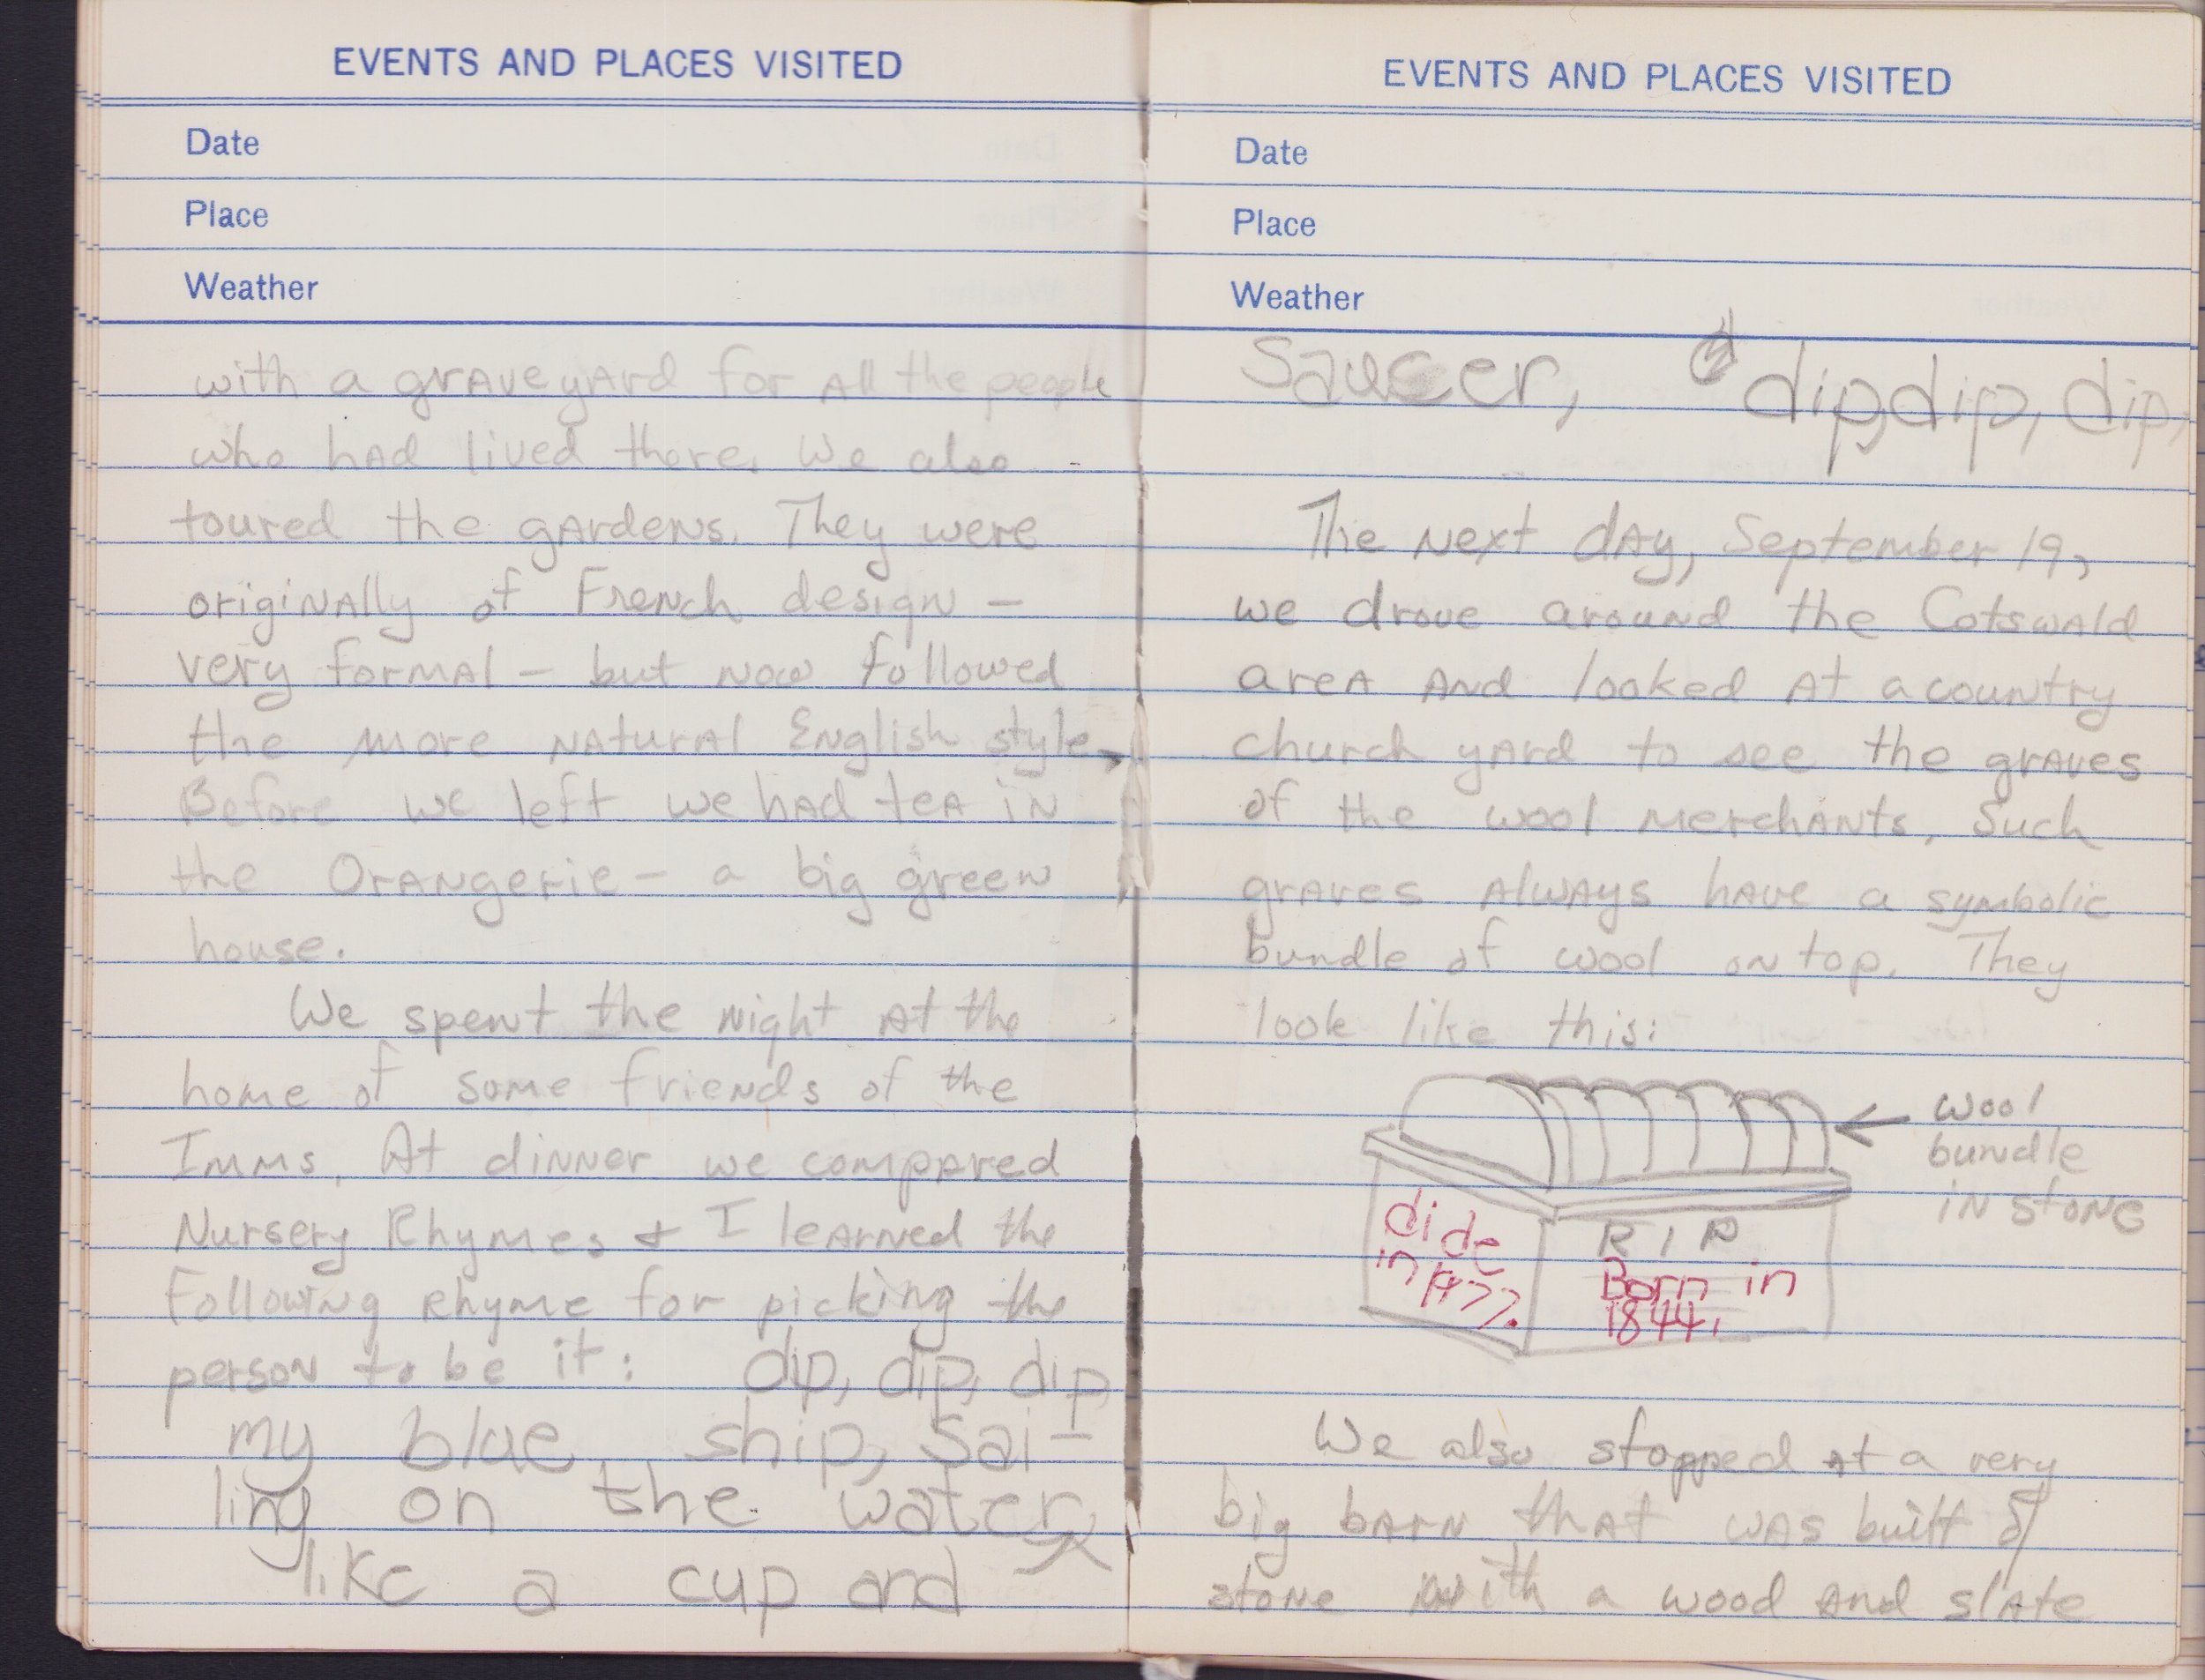 EVENTS AND PLACES VISITED
Date
Place
Weather
with a graveyard for all the people
who had lived there. We also
toured the gardens. They were
originally of French design —
very formal — but now followed
the more natural English style.
Before we left we had tea in
the Orangerie — a big green
house.
We spent the night at the
home of some friends of the
Imms. At dinner we compared
Nursery Rhymes & I learned the
following rhyme for picking the
person to be it: dip, dip, dip,
my blue ship, sai-
ling on the water,
like a cup and
EVENTS AND PLACES VISITED
Date
Place
Weather
saucer, dip, dip, dip,
The next day, September 19,
we drove around the Cotswald
area and looked at a country
church yard to see the graves
of the wool merchants. Such
graves always have a symbolic
bundle of wool on top. They
look like this:
wool
bundle
in stone
dide
in 1477.
RIP
Born in
1844.
We also stopped at a very
big barn that was built of
stone with a wood and slate